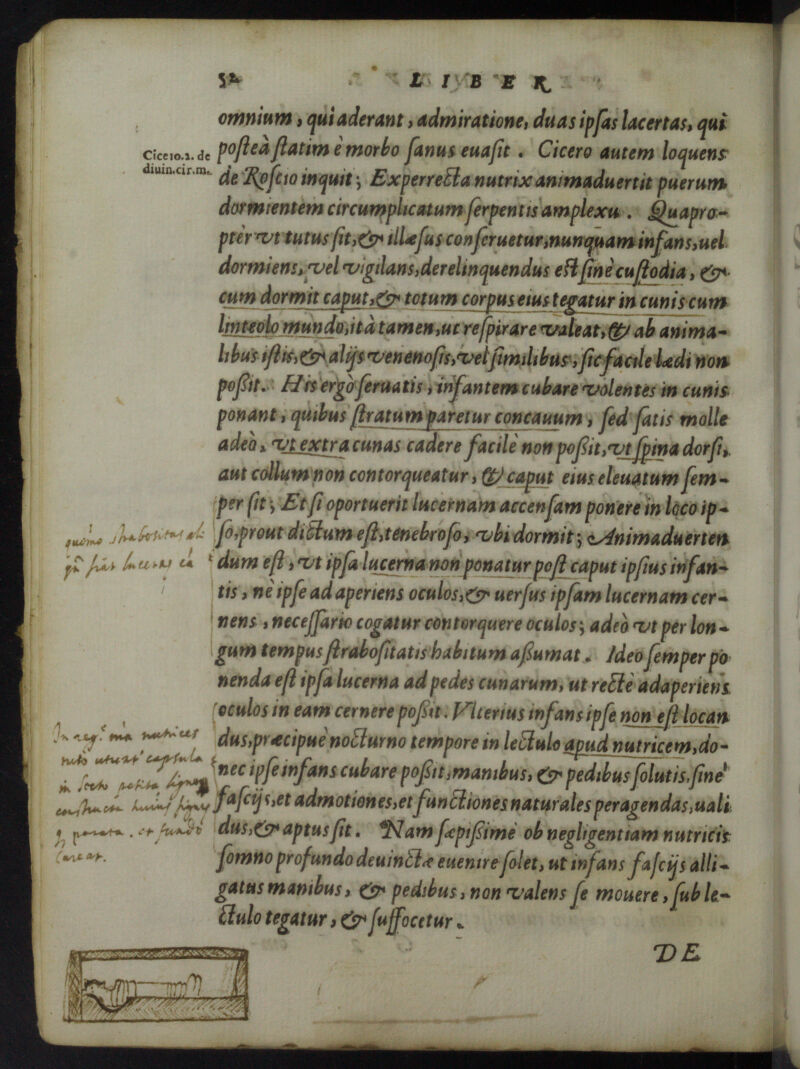 52 LIBER
omnium, qui aderant, admiratione, duas ipsas lacertas, qui
posteà statim è morbo sanus euasit. Cicero autem loquens
Cicero.1. de
diuin.cir.m.
de Roscio inquit; Experrecta nutrix animaduertit puerum
dormientem circumplicatum serpentis amplexu. Quapro-
ptèr vt tutus sit, & illæsus conseruetur, nunquam infans, uel
dormiens, vel vigilans, derelinquendus est sinè custodia, &
cum dormit caput, & totum corpus eius tegatur in cunis cum
linteolo mundo, ità tamen, ut respirare valeat, & ab anima-
libus istis, & alijs venenosis, vel similibus, sic facile lædi non
possit. His ergò seruatis, infantem cubare volentes in cunis
ponant, quibus stratum paretur concauum, sed satis molle
adeò, vt extra cunas cadere facilè non possit, vt spina dorsi,
aut collum non contorqueatur, & caput eius eleuatum sem-
per sit; Et si oportuerit lucernam accensam ponere in loco ip-
so, prout dictum est, tenebroso, vbi dormit; Animaduerten
dum est, vt ipsa lucerna non ponatur post caput ipsius infan-
tis, nè ipse adaperiens oculos, & uersus ipsam lucernam cer-
nens, necessario cogatur contorquere oculos; adeò vt per lon-
gum tempus strabositatis habitum assumat. Ideo semper po
nenda est ipsa lucerna ad pedes cunarum, ut rectè adaperiens
oculos in eam cernere possit. Vlterius infans ipse non est locan
dus, præcipuè nocturno tempore in lectulo apud nutricem, do-
nec ipse infans cubare possit, manibus, & pedibus solutis, sine
fascijs, et admotiones, et functiones naturales peragendas, uali
dus, & aptus sit. Nam sæpissimè ob negligentiam nutricis
somno profundo deuinctæ euenire solet, ut infans fascijs alli-
gatus manibus, & pedibus, non valens se mouere, sub le-
ctulo tegatur, & suffocetur.
DE
strabositas
nutrices
capsula
careat.